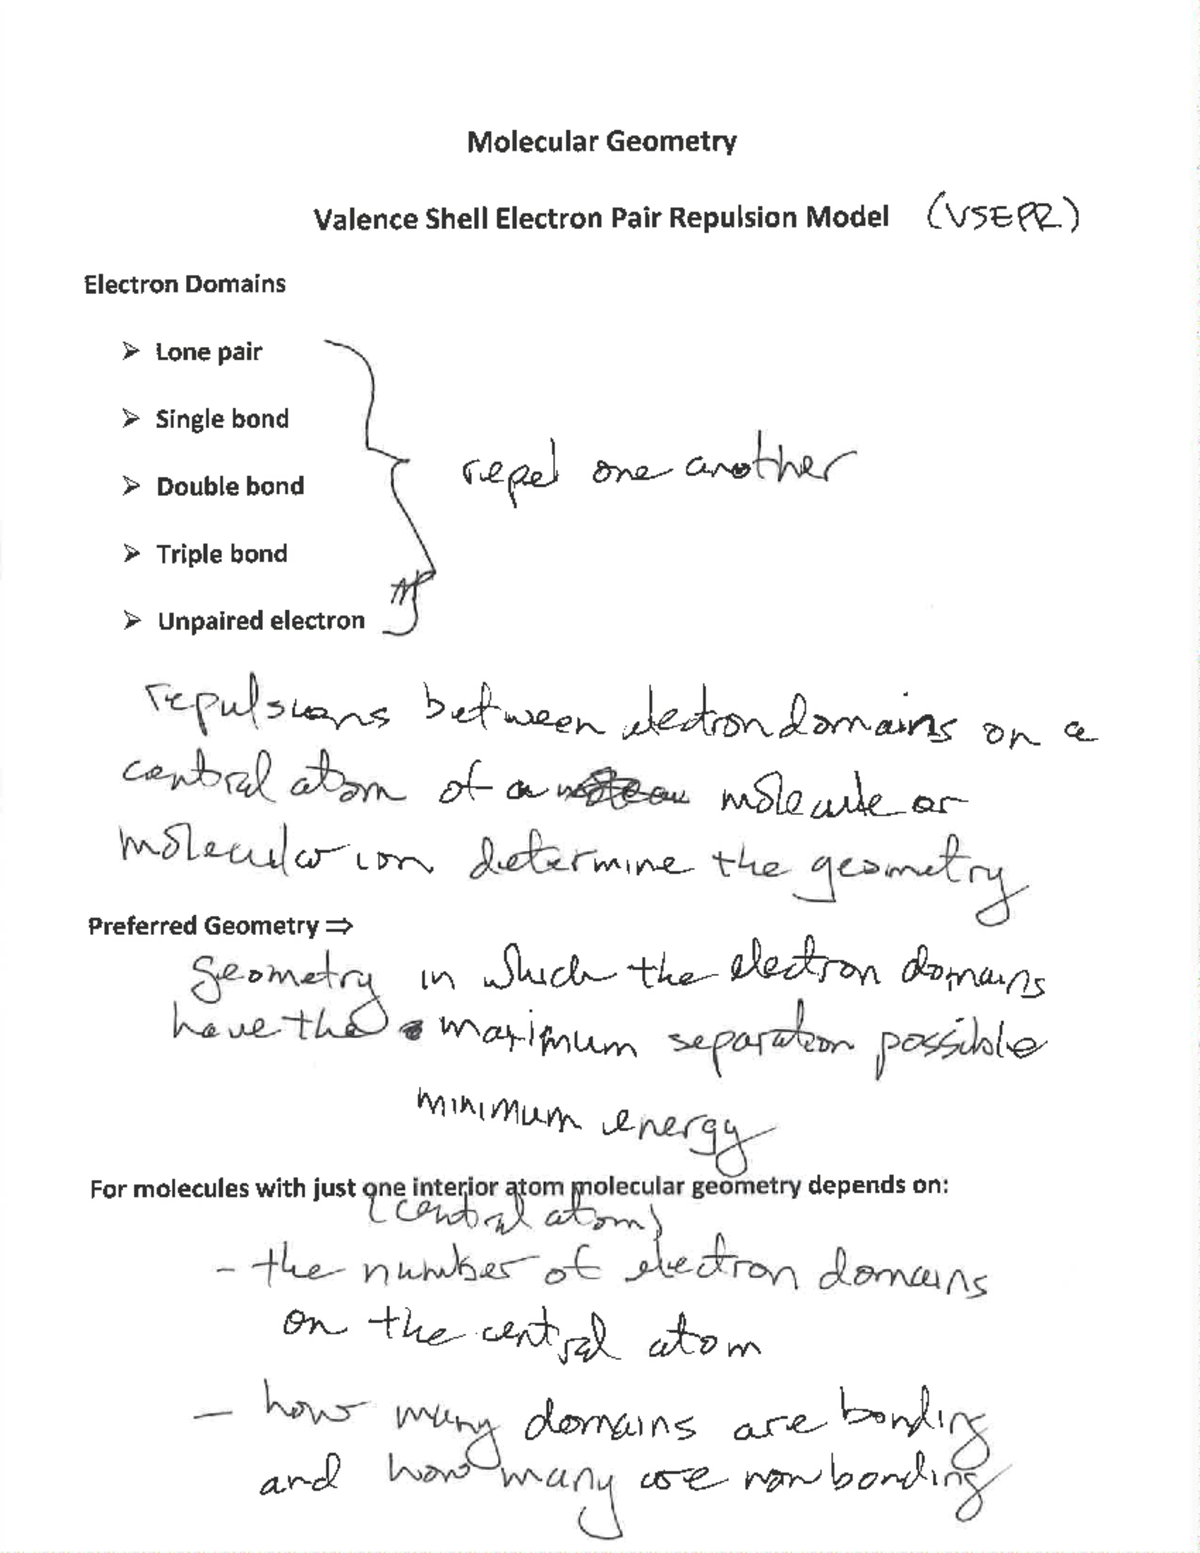 Molecular Geometry
Valence Shell Electron Pair Repulsion Model (VSEPR)
Electron Domains
➢ Lone pair
➢ Single bond
repel one another
➢ Double bond
➢ Triple bond
➢ Unpaired electron
repulsions between electron domains on a
central atom of a molecule or
molecular ion determine the geometry
Preferred Geometry ⇒
geometry in which the electron domains
have the maximum separation possible
minimum energy
For molecules with just one interior atom molecular geometry depends on:
(central atom)
- the number of electron domains
on the central atom
- how many domains are bonding
and how many are nonbonding